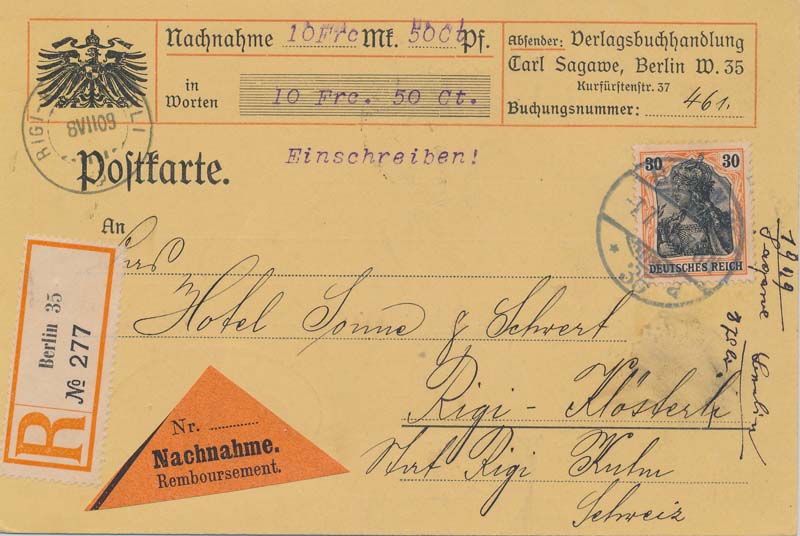 Nachnahme 10 Frc Mk. 50 Ct Pf.
in Worten 10 Frc. 50 Ct.
Absender: Verlagsbuchhandlung
Carl Sagawe, Berlin W. 35
Kurfürstenstr. 37
Buchungsnummer: 461.
RIGI
8VII09
Postkarte.
Einschreiben!
30 30
DEUTSCHES REICH
35
a
An
Hotel Sonne & Schwert
Rigi - Klösterli
Stat Rigi Kulm
Schweiz
R
Berlin 35
№ 277
Nr.
Nachnahme.
Remboursement.
Sagawe Berlin